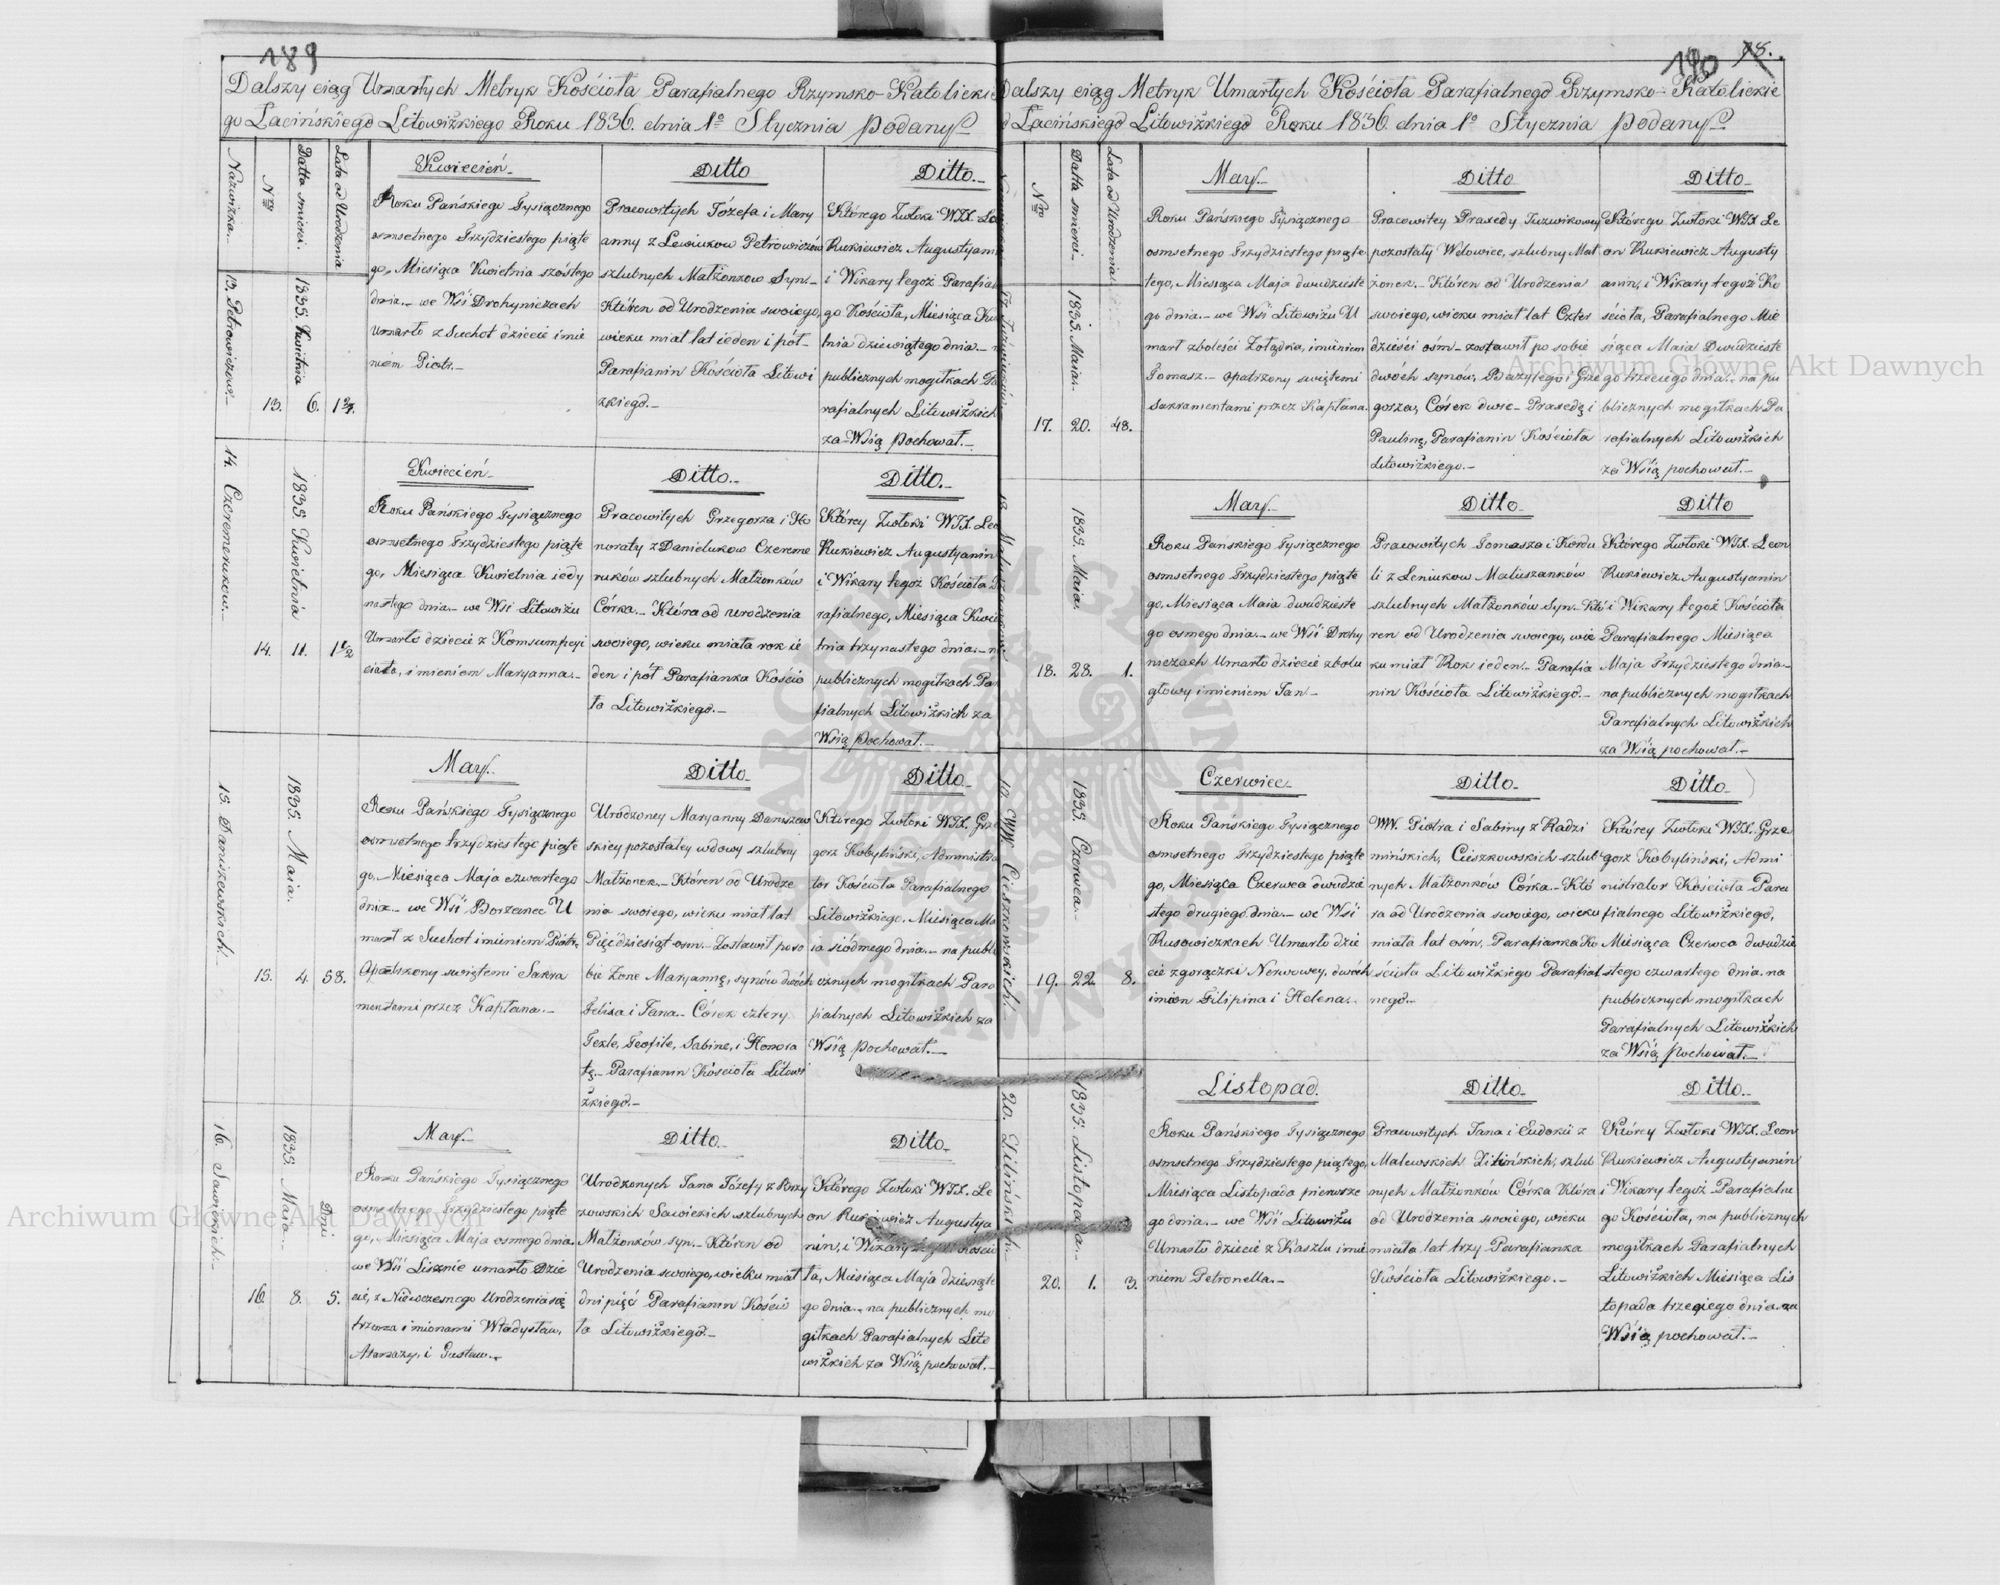 189
Dalszy ciąg Umarłych Metryk Kościoła Parafialnego Rzymsko-Katolickie
go Łacińskiego Litowiżkiego Roku 1836. dnia 1º Stycznia podany
Nazwizka.
Nro
Datta śmierci.
Lata od Urodzenia
13. Petrowiczow.
13.
1835. Kwietnia
6.
Kwiecień.
Roku Pańskiego Tysiącznego
osmsetnego Trzydziestego piąte
go, Miesiąca Kwietnia szóstego
dnia. we Wsi Drohyniczach
Umarło z Suchot dziecie imie
niem Piotr.
Ditto
Pracowitych Józefa i Mary
anny z Lewiukow Petrowiczów
szlubnych Małżonzow Syn.
Któren od Urodzenia swoiego,
wieku miał lat ieden i pół.
Parafianin Kościoła Litowi
zkiego.
Ditto.
Którego Zwłoki WJX. Le
Rukiewicz Augustyani
i Wikary tegoż Parafial
go Kościoła, Miesiąca Kwie
tnia dziewiątego dnia.
publicznych mogiłkach Pa
rafialnych Litowiżkich
za Wsią Pochował.
14. Czeremerukow.
14.
1835. Kwietnia
11.
1 1/2
Kwiecień.
Roku Pańskiego Tysiącznego
osmsetnego Trzydziestego piąte
go, Miesiąca Kwietnia iedy
nastego dnia. we Wsi Litowiżu
Umarło dziecie z Komsumpcyi
ciała, imieniem Maryanna.
Ditto.
Pracowitych Grzegorza i Ho
noraty z Danielukow Czereme
ruków szlubnych Małżonków
Córka. Która od urodzenia
swoiego, wieku miała rok ie
den i pół Parafianka Kościo
ła Litowiżkiego.
Ditto.
Którey Zwłoki WJX. Leo
Rukiewicz Augustyanin
i Wikary tegoż Kościoła P
rafialnego, Miesiąca Kwie
tnia trzynastego dnia.
publicznych mogiłkach Pa
fialnych Litowiżkich za
Wsią Pochował.
15. Daniszewskich.
15.
1835. Maia.
4.
58.
May.
Roku Pańskiego Tysiącznego
osmsetnego trzydziestego piąte
go, Miesiąca Maja czwartego
dnia. we Wsi Borzance U
marł z Suchot imieniem Piotr.
Opatrzony swiętemi Sakra
mentami przez Kapłana.
Ditto.
Urodzoney Maryanny Daniszew
skiey pozostałey wdowy szlubny
Małżonek. Któren od Urodze
nia swoiego, wieku miał lat
Pięćdziesiąt osm. Zostawił po so
bie Żone Maryannę, synów dwóch
Felixa i Jana. Córek cztery
Tekle, Teofile, Sabine, i Honora
tę. Parafianin Kościoła Litowi
żkiego.
Ditto.
Którego Zwłoki WJX. Grze
gorz Kobyliński, Administra
tor Kościoła Parafialnego
Litowiżkiego. Miesiąca Ma
ia siódmego dnia. na publi
cznych mogiłkach Para
fialnych Litowiżkich za
Wsią Pochował.
16. Sawickich.
16.
1835. Maia.
8.
Dni
5.
May.
Roku Pańskiego Tysiącznego
osmsetnego Trzydziestego piąte
go, Miesiąca Maja osmego dnia.
we Wsi Lisznie umarło Dzie
cie, z Niewczesnego Urodzenia się
trzema imionami Władysław,
i Gustaw.
Ditto.
Urodzonych Jana Józefy z Brzy
zowskich Sawickich szlubnych
Małżonków syn. Któren od
Urodzenia swoiego, wieku miał
dni pięć Parafianin Kościo
ła Litowiżkiego.
Ditto.
Którego Zwłoki WJX. Le
on Rukiewicz Augustya
nin, i Wikary tegoż Kościo
ła, Miesiąca Maja dziesiąte
go dnia. na publicznych mo
giłkach Parafialnych Lito
wiżkich za Wsią pochował.
190
18.
Dalszy ciąg Metryk Umarłych Kościoła Parafialnego Rzymsko-Katolickie
o Łacińskiego Litowiżkiego Roku 1836. dnia 1º Stycznia podany
Nro
Datta śmierci.
Lata od Urodzenia
17.
1835. Maia.
20.
48.
May.
Roku Pańskiego Tysiącznego
osmsetnego Trzydziestego piąte
tego, Miesiąca Maja dwudzieste
go dnia. we Wsi Litowiżu U
marł z boleści Żołądka, imieniem
Tomasz. opatrzony swiętemi
Sakramentami przez Kapłana.
Ditto
Pracowitey Praxedy
pozostały Wdowiec, szlubny Mał
żonek. Któren od Urodzenia
swoiego, wieku miał lat Czter
dzieści ośm. zostawił po sobie
dwóch synów, Bazylego i Grze
gorza, Córek dwie. Praxedę i
Paulinę, Parafianin Kościoła
Litowiżkiego.
Ditto.
Którego Zwłoki WJX Le
on Rukiewicz Augusty
anin, i Wikary tegoż Ko
ścioła, Parafialnego Mie
siąca Maia Dwudzieste
go trzeciego dnia. na pu
blicznych mogiłkach Pa
rafialnych Litowiżkich
za Wsią pochował.
18.
1835. Maia.
28.
1.
May.
Roku Pańskiego Tysiącznego
osmsetnego Trzydziestego piąte
go, Miesiąca Maia dwudzieste
go osmego dnia. we Wsi Drohy
niczach Umarło dziecie z bolu
głowy imieniem Jan.
Ditto.
Pracowitych Tomasza i Kordu
li z Leniukow Matuszanków
szlubnych Małżonków Syn. Któ
ren od Urodzenia swoiego, wie
ku miał Rok ieden. Parafia
nin Kościoła Litowiżkiego.
Ditto
Którego Zwłoki WJX. Leon
Rukiewicz Augustyanin
i Wikary tegoż Kościoła
Parafialnego Miesiąca
Maja Trzydziestego dnia.
na publicznych mogiłkach
Parafialnych Litowiżkich
za Wsią pochował.
19. WW. Cieszkowskich.
19.
1835. Czerwca.
22.
8.
Czerwiec.
Roku Pańskiego Tysiącznego
osmsetnego Trzydziestego piąte
go, Miesiąca Czerwca dwudzie
stego drugiego dnia. we Wsi
Rusowiczkach Umarło dzie
cie z gorączki Nerwowey, dwóch
imion Filipina i Helena.
Ditto.
WW. Piotra i Sabiny z Radzi
mińskich, Cieszkowskich szlub
nych Małżonków Córka. Któ
ra od Urodzenia swoiego, wieku
miała lat osm. Parafianka Ko
ścioła Litowiżkiego Parafial
nego.
Ditto
Którey Zwłoki WJX. Grze
gorz Kobyliński, Admi
nistrator Kościoła Para
fialnego Litowiżkiego,
Miesiąca Czerwca dwudzie
stego czwartego dnia. na
publicznych mogiłkach
Parafialnych Litowiżkich
za Wsią Pochował.
20. Zilińskich.
20.
1835. Listopada.
1.
3.
Listopad.
Roku Pańskiego Tysiącznego
osmsetnego Trzydziestego piątego,
Miesiąca Listopada pierwsze
go dnia. we Wsi Litowiżu
Umarło dziecie z Kaszlu imie
niem Petronella.
Ditto.
Pracowitych Jana i Eudokii z
Malewskich Zilińskich, szlub
nych Małżonków Córka Która
od Urodzenia swoiego, wieku
miała lat trzy Parafianka
Kościoła Litowiżkiego.
Ditto.
Którey Zwłoki WJX. Leon
Rukiewicz Augustyanin
i Wikary tegoż Parafialne
go Kościoła, na publicznych
mogiłkach Parafialnych
Litowiżkich Miesiąca Lis
topada trzeciego dnia. za
Wsią pochował.
Archiwum Główne Akt Dawnych
Archiwum Główne Akt Dawnych
Archiwum Główne Akt Dawnych